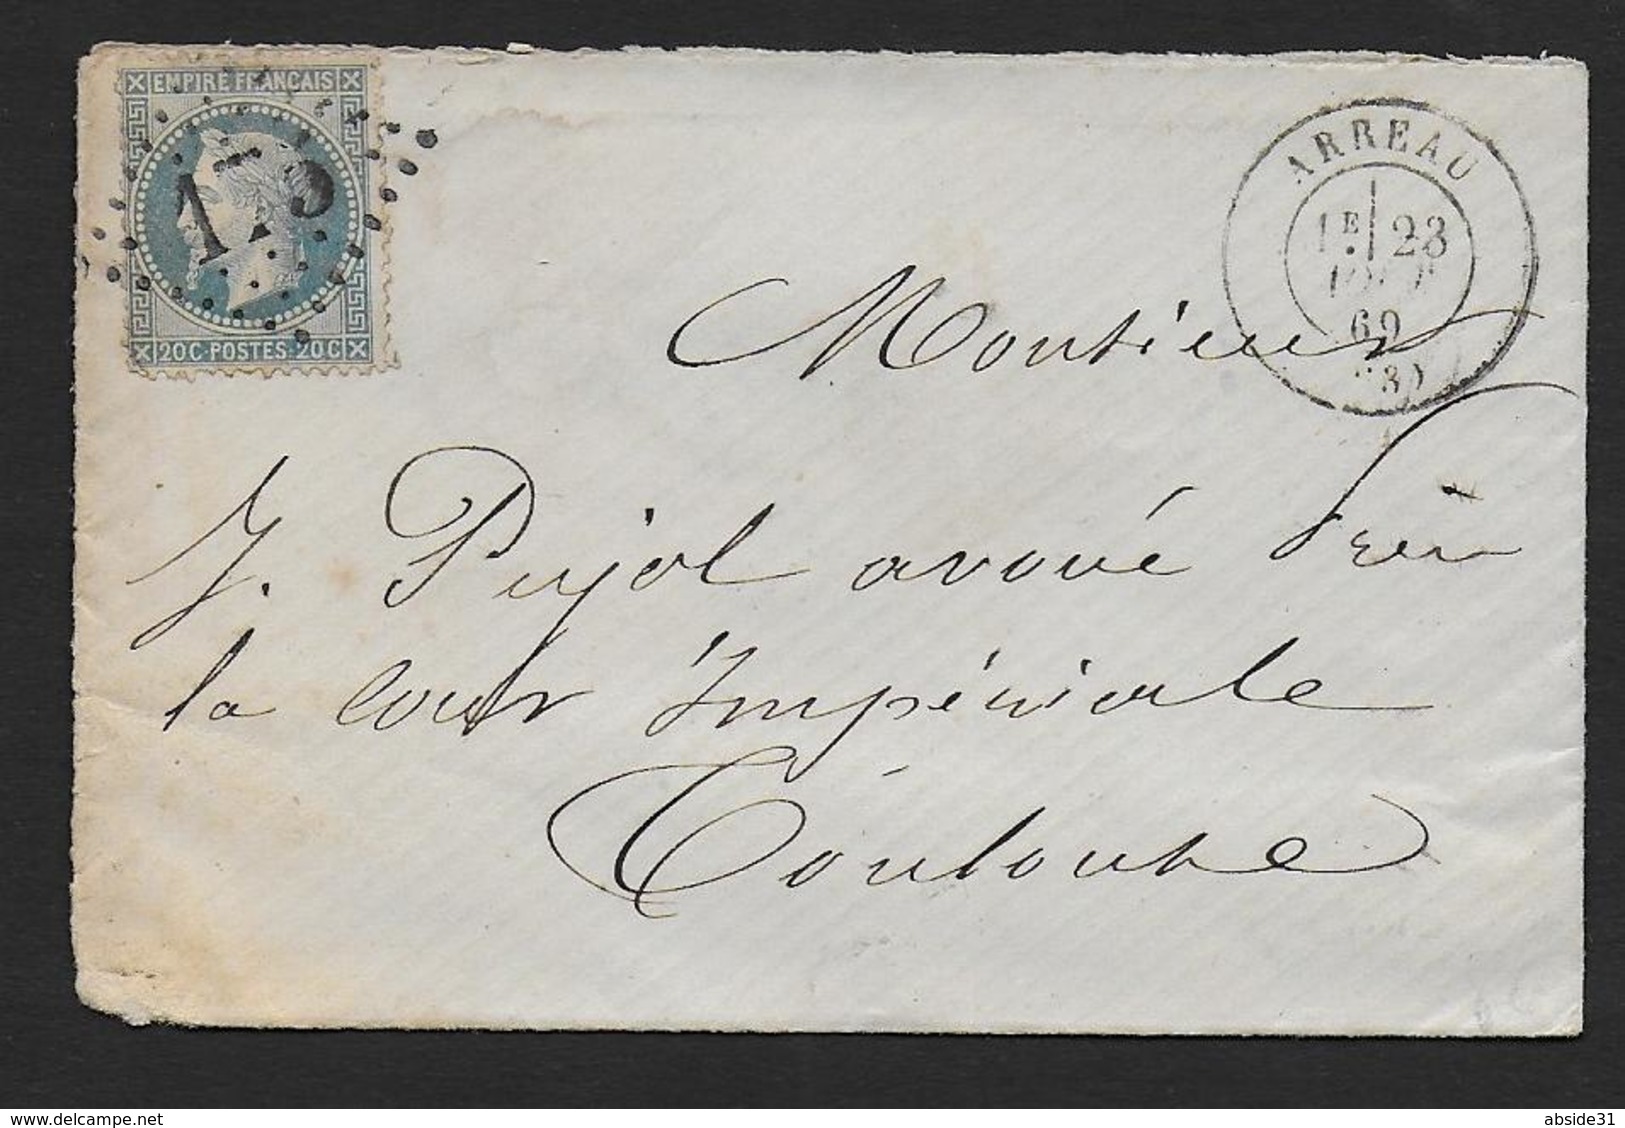 EMPIRE FRANÇAIS
175
20C POSTES 20C
ARREAU
1E 23
AOUT
69
Monsieur
J. Pujol avoué près
la cour Impériale
Toulouse
www.delcampe.net
abside31